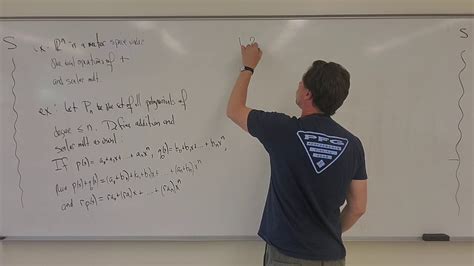 S
S
ex: ℝⁿ is a vector space under
the usual operations of +
and scalar mult.
ex: Let Pₙ be the set of all polynomials of
degree ≤ n. Define addition and
scalar mult as usual:
If p(x) = a₀+a₁x+ ... +aₙxⁿ, q(x) = b₀+b₁x+ ... +bₙxⁿ,
p(x)+q(x) = (a₀+b₀)+(a₁+b₁)x+ ... +(aₙ+bₙ)xⁿ
and rp(x) = ra₀+(ra₁)x+ ... +(raₙ)xⁿ
PFG